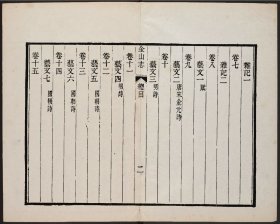 雜記一
卷七
雜記二
卷八
藝文一 賦
卷九
藝文二 唐宋金元詩
卷十
藝文三 明詩
金山志 總目 二
卷十一
藝文四 明詩
卷十二
藝文五 國朝詩
卷十三
藝文六 國朝詩
卷十四
藝文七 國朝詩
卷十五